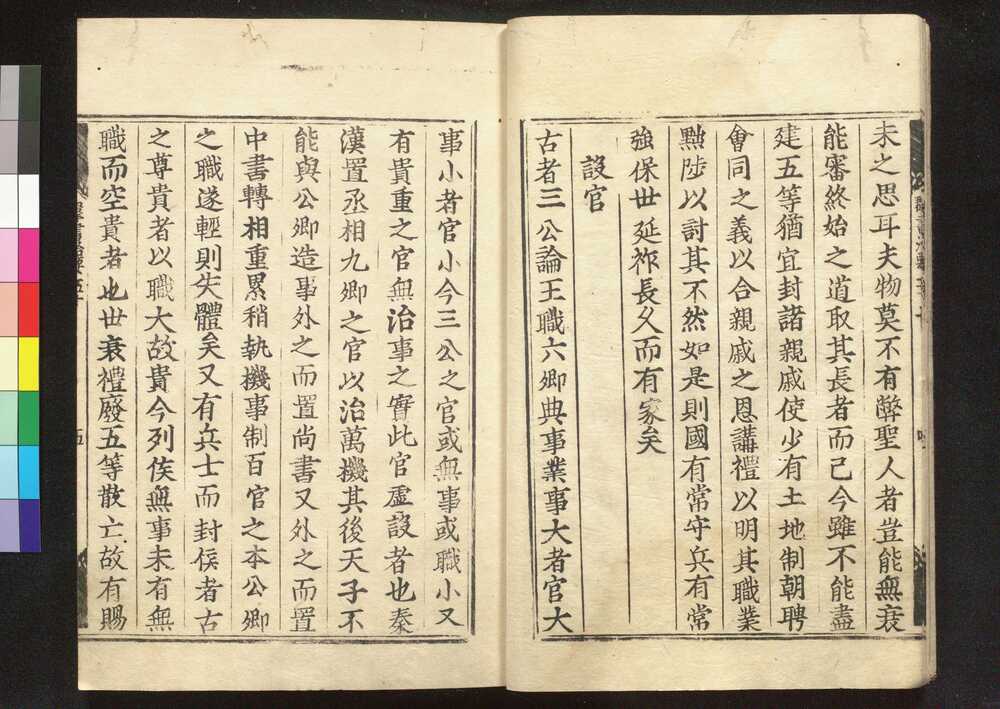 末之思耳夫物莫不有弊聖人者豈能無衰
能審終始之道取其長者而已今雖不能盡
建五等猶宜封諸親戚使少有土地制朝聘
會同之義以合親戚之恩講禮以明其職業
黜陟以討其不然如是則國有常守兵有常
強保世延祚長久而有家矣
設官
古者三公論王職六卿典事業事大者官大
事小者官小今三公之官或無事或職小又
有貴重之官無治事之實此官虛設者也秦
漢置丞相九卿之官以治萬機其後天子不
能與公卿造事外之而置尚書又外之而置
中書轉相重累稍執機事制百官之本公卿
之職遂輕則失體矣又有兵士而封侯者古
之尊貴者以職大故貴今列侯無事未有無
職而空貴者也世衰禮廢五等散亡故有賜